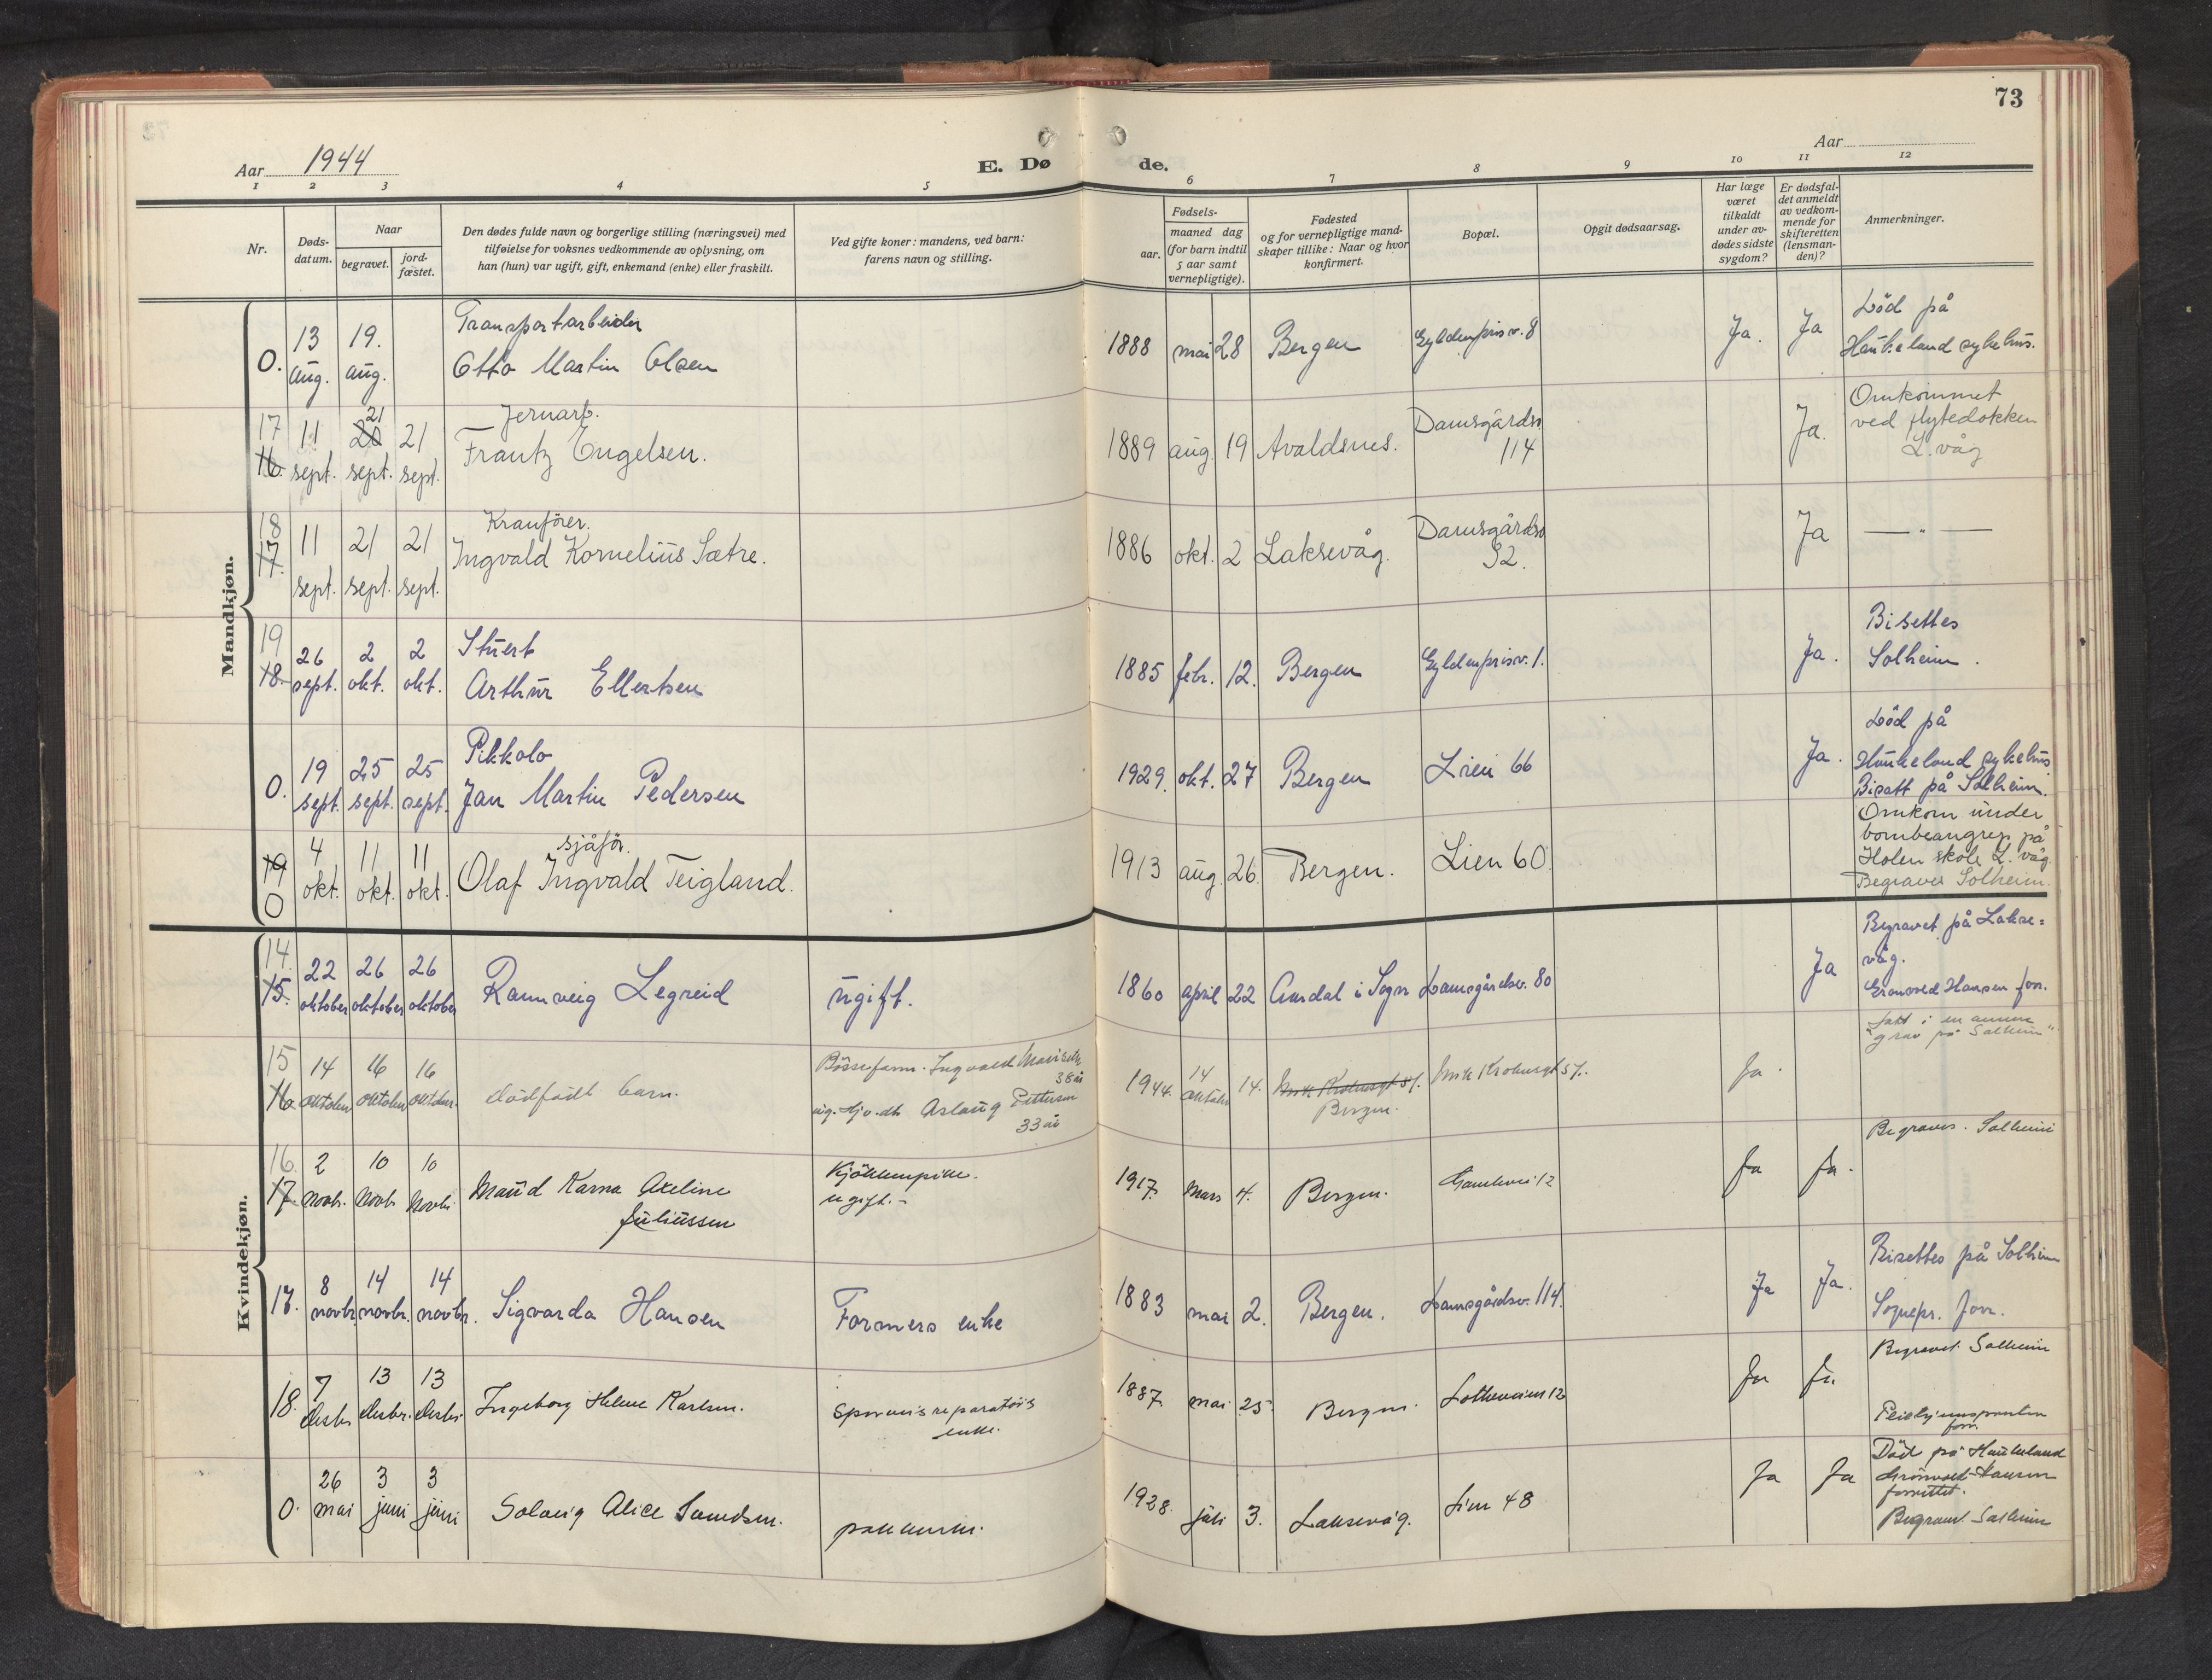 73
Aar 1944
E. Dø de.
Aar
1 2 3 4 5 6 7 8 9 10 11 12
Nr.
Døds-
datum.
Naar
begravet.
jord-
fæstet.
Den dødes fulde navn og borgerlige stilling (næringsvei) med
tilføielse for voksnes vedkommende av oplysning, om
han (hun) var ugift, gift, enkemand (enke) eller fraskilt.
Ved gifte koner: mandens, ved barn:
farens navn og stilling.
Fødsels-
aar.
maaned dag
(for barn indtil
5 aar samt
vernepligtige).
Fødested
og for vernepligtige mand-
skaper tillike: Naar og hvor
konfirmert.
Bopæl.
Opgit dødsaarsag.
Har læge
været
tilkaldt
under av-
dødes sidste
sygdom?
Er dødsfal-
det anmeldt
av vedkom-
mende for
skifteretten
(lensman-
den)?
Anmerkninger.
Mandkjøn.
0. 13 aug. 19. aug.
Transportarbeider
Otto Martin Olsen
1888 mai 28 Bergen Gyldenprisv. 8 Ja. Ja
Död på
Haukeland sykehus.
17 16. 11 sept. 20 21 sept. 21 sept.
Jernarb.
Frantz Engelsen.
1889 aug. 19 Avaldsnes. Damsgårdsv 114 Ja.
Omkommet
ved flytedokken
L.våg
18 17. 11 sept. 21 sept. 21 sept.
Kranförer.
Ingvald Kornelius Sætre.
1886 okt. 2 Laksevåg. Damsgårdsv 92. Ja
— " —
19 18. 26 sept. 2 okt. 2 okt.
Stuert
Arthur Ellertsen
1885 febr. 12. Bergen Gyldenprisv. 1. Ja.
Bisettes
Solheim.
0. 19 sept. 25 sept. 25 sept.
Pikkolo
Jan Martin Pedersen
1929. okt. 27 Bergen Lien 66 Ja.
Död på
Haukeland sykehus
Bisatt på Solheim.
19 0 4 okt. 11 okt. 11 okt.
sjåför.
Olaf Ingvald Teigland.
1913 aug. 26. Bergen. Lien 60.
Omkom under
bombeangrep på
Holen skole L.våg.
Begraves Solheim.
Kvindekjøn.
14. 15. 22 oktober 26 oktober 26 oktober
Rannveig Legreid ugift.
1860 april 22 Aurdal i Sogn Damsgårdsv. 80 Ja
Begravet på Lakse-
våg.
Grønvold Hansen forr.
15 16 14 oktober 16 oktober 16 oktober.
dödfödt barn.
Ingvald
38 år
Aslaug Pettersen
33 år
1944. 14 oktober 14. Bergen. Ja.
"Lagt i en annen
grav på Solheim"
16. 17. 2 Novb. 10 Novb. 10 Novb.
Maud Karna Axeline
Juliussen
Kjökkenpike.
ugift.-
1917. Mars 4. Bergen. 12 Ja Ja.
Begraves. Solheim
17. 8 novbr. 14 novbr. 14 novbr.
Sigvarda Hansen Formers enke
1883 mai 2. Bergen. Damsgårdsv. 114. Ja Ja.
Bisettes på Solheim
Sognepr. forr.
18. 7 desbr. 13 desbr. 13 desbr.
Ingeborg Helene Karlsen.
enke.
1887. mai 25. Bergen. 12 Ja Ja.
Begravet. Solheim
forr.
0. 26 mai 3 juni 3 juni
Solveig Alice
1928. juli 3. Laksevåg. Lien 48 Ja Ja
Död på Haukeland
Grönvold-Hansen
forrettet.
Begravet. Solheim